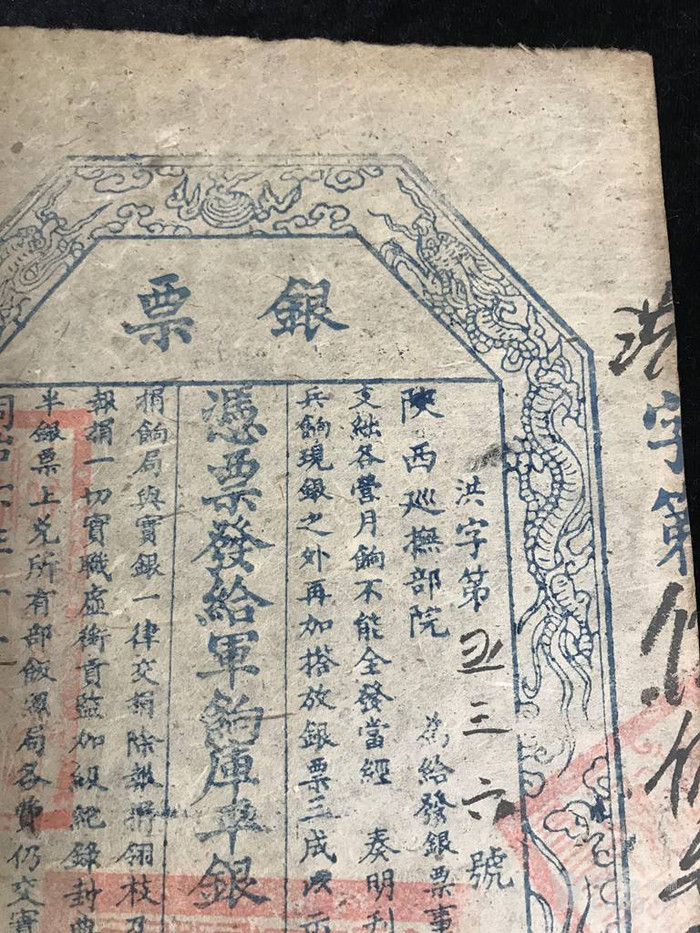 洪字第
銀票
洪字第五三六號
陝西巡撫部院 為給發銀票事
支絀各營月餉不能全發當經 奏明刊
兵餉現銀之外再加搭放銀票三成以示
憑票發給軍餉庫平銀
捐餉局與實銀一律交捐除報捐翎枝及
報捐一切實職虛銜貢監加級紀錄封典
半銀票上兌所有部飯照局各費仍交實
同治六年十